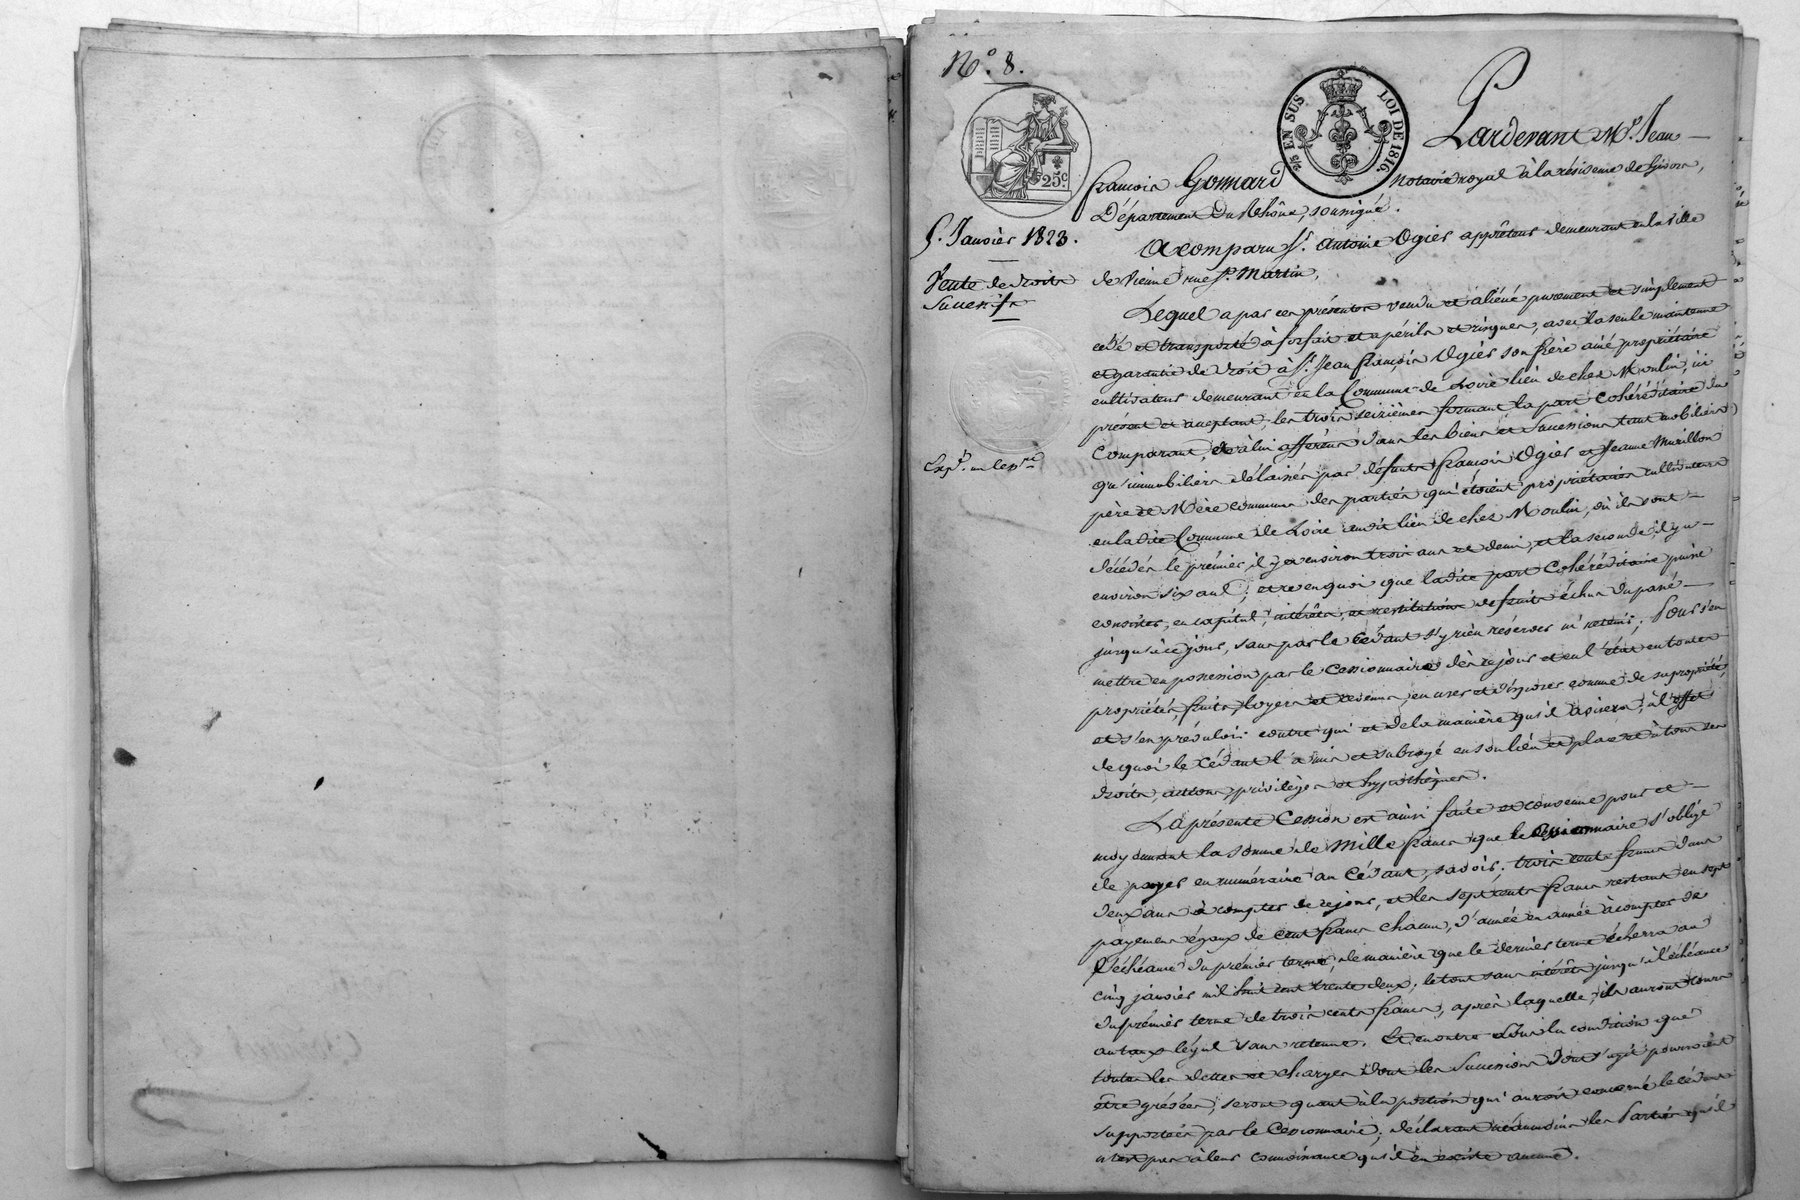 N.° 8.
2/5 EN SUS LOI DE 1816
25 c
5. Janvier 1823.
Vente de droits
Successifs
Exp.é en le p.re
Pardevant M.e Jean
françois Gonnard Notaire royal à la résidence de Givors,
Département du Rhône, soussigné.
A comparu S.r Antoine Ogier apprêteur demeurant en la ville
de Vienne rue S.t Martin,
Lequel a par ces présentes vendu et aliéné purement et simplement
cédé et transporté à forfait et à périls et risques, avec la seule maintenue
et garantie de droit à S.r Jean françois Ogier son frère ainé propriétaire
cultivateur demeurant en la Commune de Loire lieu de chez Moulin, ici
présent et acceptant, les trois seizièmes formant la part Cohéréditaire du
Comparant, et à lui afférents dans les biens et Successions tant mobiliers
qu'immobiliers délaissés par défunts françois Ogier et Jeanne Murillon
père et Mère communs des parties qui étoient propriétaires cultivateurs
en la dite Commune de Loire audit lieu de chez Moulin, où ils sont
décédés le premier, il y a environ trois ans et demi, et la seconde, il y a
environ six ans; et ce en quoi que ladite part Cohéréditaire puisse
consister, en capital, intérêts, et restitutions de fruits échus du passé
jusqu'à ce jour, sans par le Cédant s'y rien réserver ni retenir; Pour s'en
mettre en possession par le Cessionnaire dès ce jour et en l'état en toute
propriétés, fruits, loyers et revenus, en user et disposer comme de sa propriété,
et s'en prévaloir contre qui et de la manière qu'il avisera, à l'effet
de quoi le Cédant l'a mis et subrogé en son lieu et place et à tous ses
droits, actions, privilèges et hypothèques.
La présente Cession est ainsi faite et convenue pour et
moyennant la somme de Mille francs que le Cessionnaire s'oblige
de payer en numéraire au Cédant, savoir; trois cents francs dans
deux ans à compter de ce jour, et les sept cents francs restant en sept
payemens égaux de cent francs chacun, d'année en année à compter de
l'échéance du premier terme, de manière que le dernier terme écherra au
cinq janvier mil huit cent trente deux; le tout sans intérêts jusqu'à l'échéance
du premier terme de trois cents francs, après laquelle, ils auront cours
au taux légal sans retenue. Et encontre sous la condition que
toutes les dettes et charges dont les Successions dont s'agit pourroient
être grésées, seront quant à la portion qui auroit concerné le cédant
supportées par le Cessionnaire; déclarant néanmoins les Parties qu'il
n'est pas à leur connoissance qu'il en existe aucune.